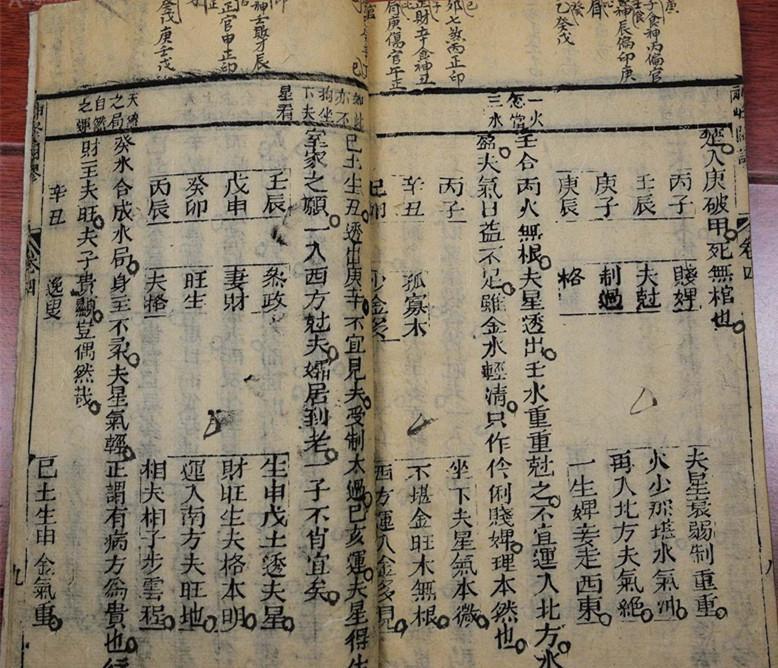 運入庚破甲死無棺也
丙子 賤婢 夫星衰弱制重重
壬辰 夫尅 火少那堪水氣冲
庚子 制過 再入北方夫氣絶
庚辰 格 一生婢妾走西東
一火
怎當
三水
壬合丙火無根夫星透出壬水重重尅之不宜運入北方水
盈夫氣日益不足雖金水輕清只作伶俐賤婢理本然也
丙子 坐下夫星氣本微
辛丑 孤寡木 不堪金旺木無根
己卯 少金多 西方運入金多見
亦不
拘坐
下夫
星看
己土生丑透出庚辛不宜見夫受制太過己亥運夫星得生
室家之願一入西方尅夫孀居到老一子不肖宜矣
壬辰 參政 生申戊土透夫星
戊申 妻財 財旺生夫格本明
癸卯 旺生 運入南方夫旺地
丙辰 夫格 相夫相子步雲程
天然
之局
自然
之運
癸水合成水局身主不弱夫星氣輕正謂有病方為貴也經
財主夫旺夫子貴顯豈偶然哉
辛丑 逸叟 己土生申金氣重
卷四 九